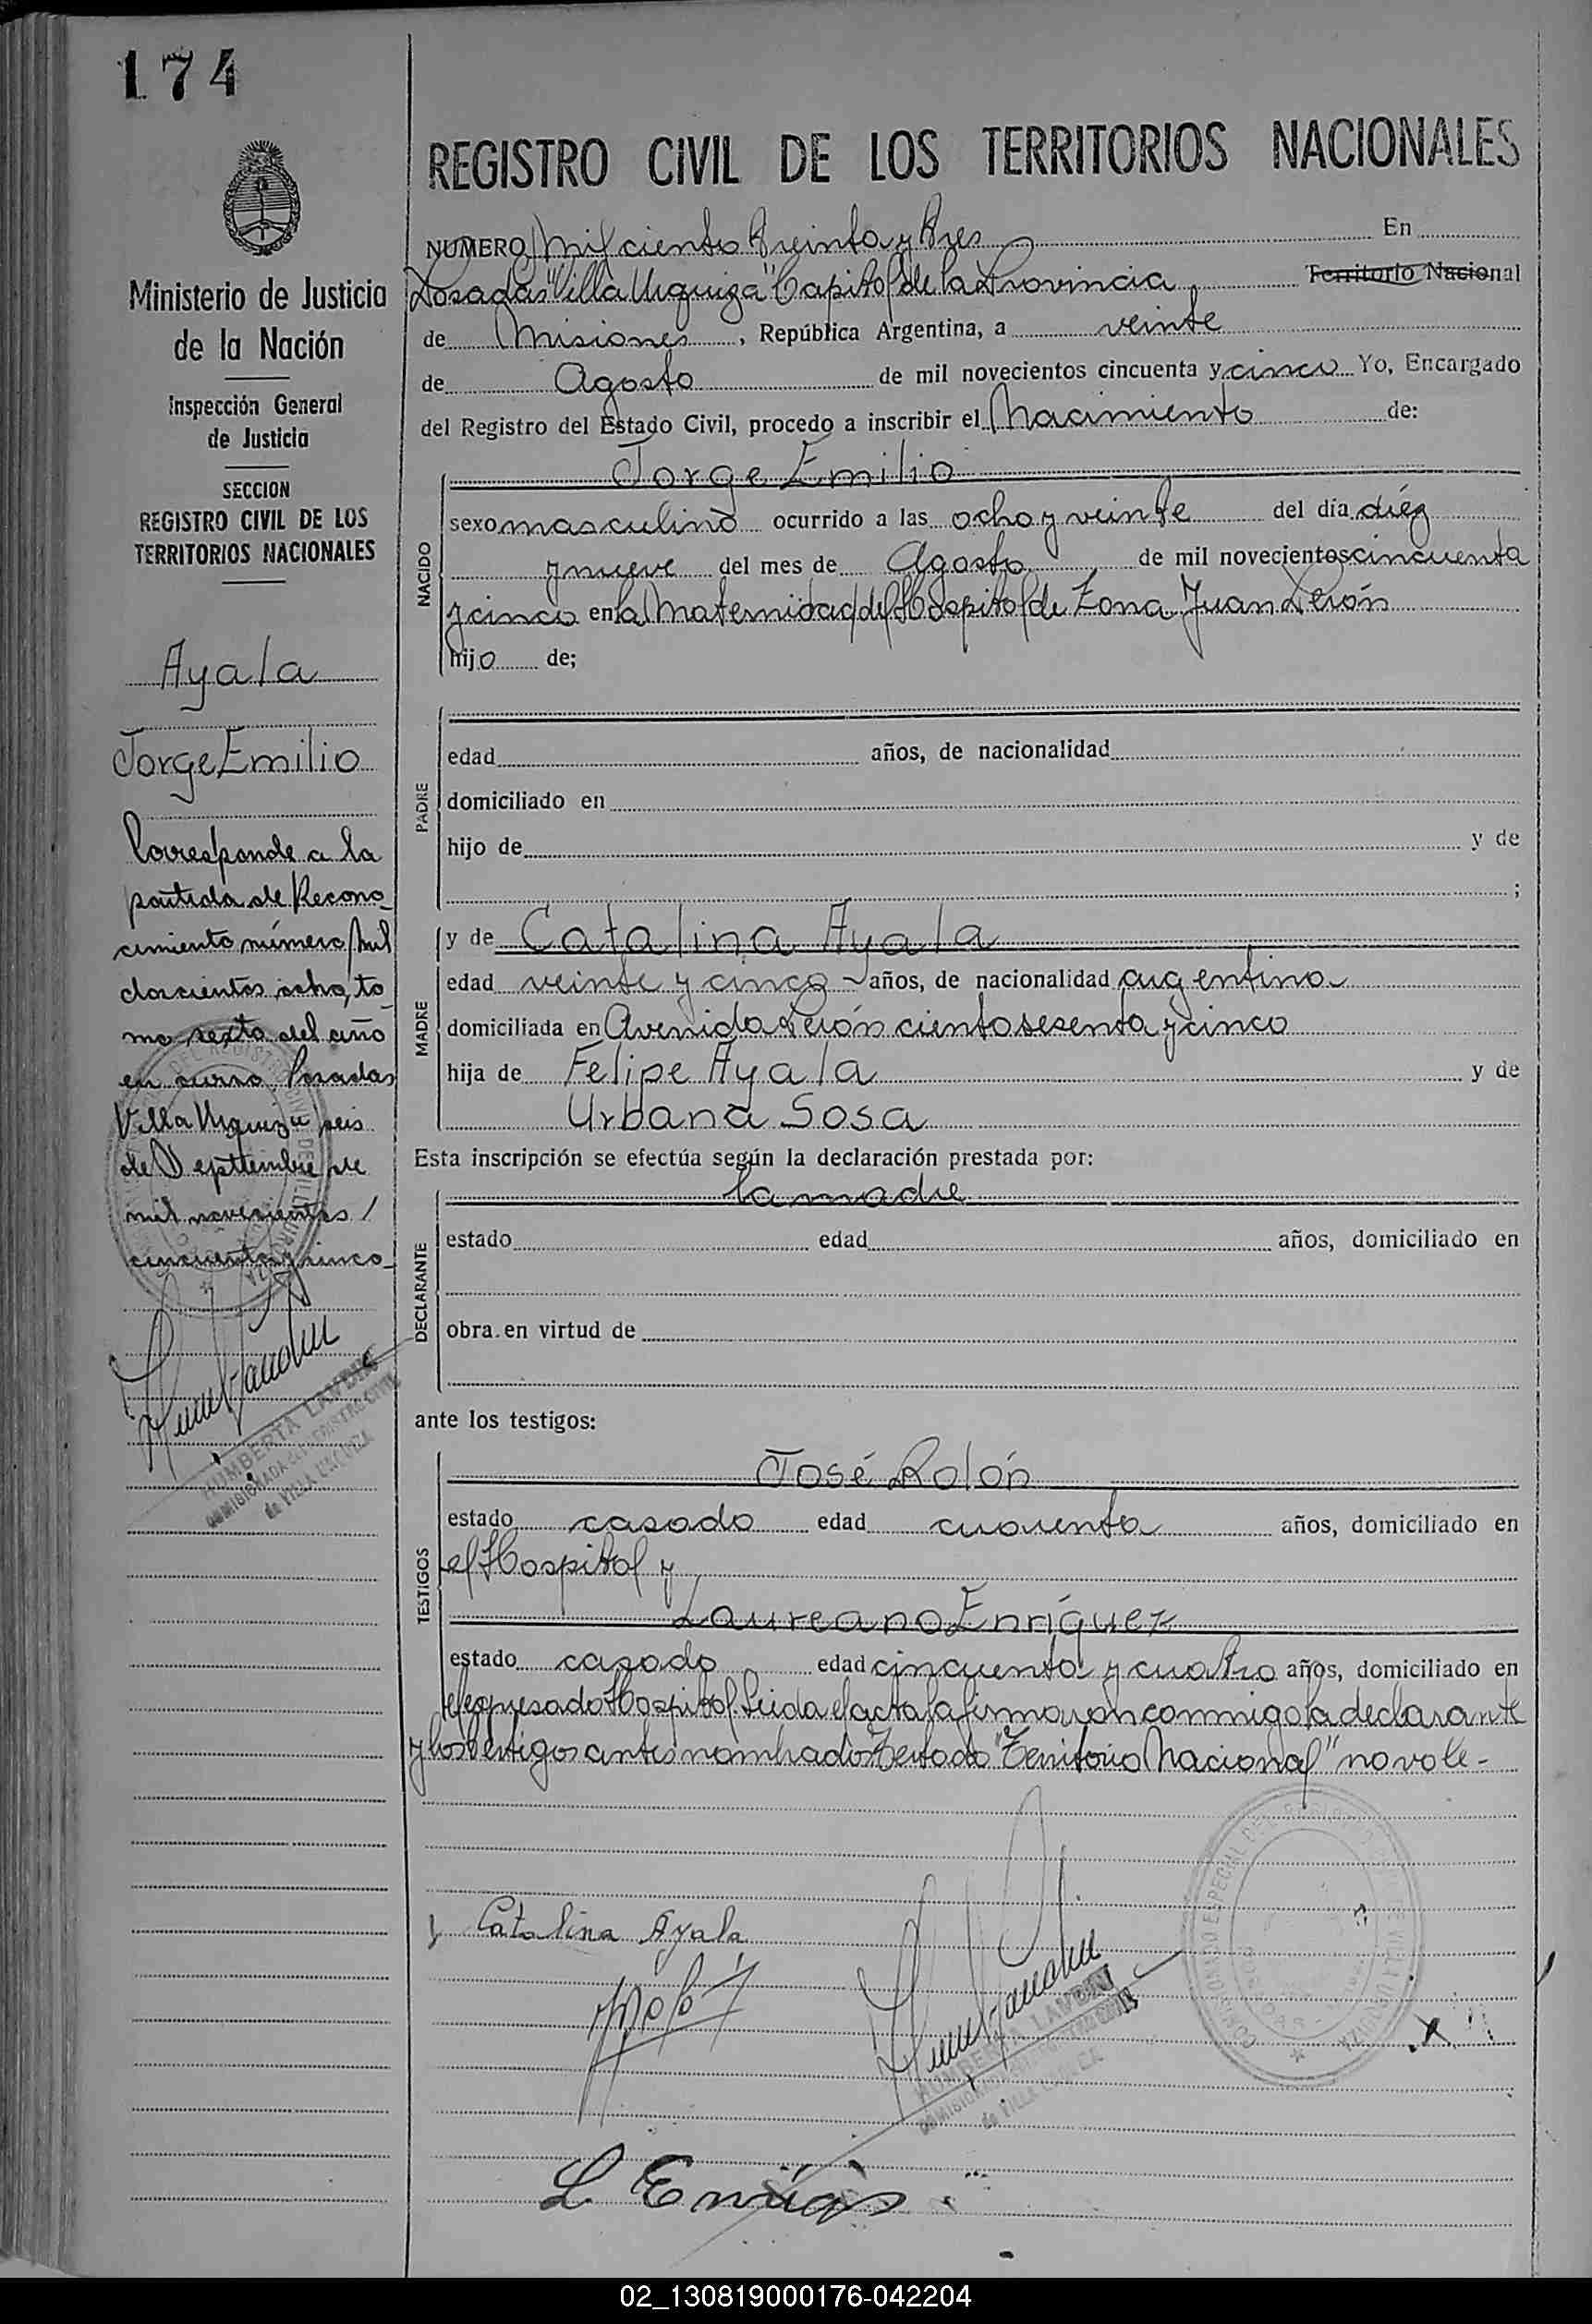 174
REGISTRO CIVIL DE LOS TERRITORIOS NACIONALES
Ministerio de Justicia
de la Nación
Inspección General
de Justicia
SECCION
REGISTRO CIVIL DE LOS
TERRITORIOS NACIONALES
Ayala
Jorge Emilio
Corresponde a la
partida de Recono_
cimiento número Mil
doscientos ocho, to
mo sexto del año
en curso. Posadas
Villa Urquiza seis
de Septtiembre de
mil novecientos /
cincuenta y cinco_
HUMBERTA LANDIN
COMISIONADA DEL REGISTRO CIVIL
de VILLA URQUIZA
NUMERO Mil ciento treinta y tres En
Posadas "Villa Urquiza" Capital de la Provincia Territorio Nacional
de Misiones, República Argentina, a veinte
de Agosto de mil novecientos cincuenta y cinco Yo, Encargado
del Registro del Estado Civil, procedo a inscribir el Nacimiento de:
NACIDO
Jorge Emilio
sexo masculino ocurrido a las ocho y veinte del día diéz
y nueve del mes de Agosto de mil novecientos cincuenta
y cinco en la Maternidad del Hospital de Zona Juan Perón
hijo de;
PADRE
edad años, de nacionalidad
domiciliado en
hijo de y de
;
MADRE
y de Catalina Ayala
edad veinte y cinco - años, de nacionalidad argentina
domiciliada en Avenida Perón ciento sesenta y cinco
hija de Felipe Ayala y de
Urbana Sosa
Esta inscripción se efectúa según la declaración prestada por:
DECLARANTE
la madre
estado edad años, domiciliado en
obra en virtud de
ante los testigos:
TESTIGOS
José Rolón
estado casado edad cuarenta años, domiciliado en
el Hospital y
Laureano Enríquez
estado casado edad cincuenta y cuatro años, domiciliado en
el expresado Hospital. Leida el acta la firmaron conmigo la declarante
y los testigos antes nombrados. Testado "Territorio Nacional" no vale-
Catalina Ayala
HUMBERTA LANDIN
COMISIONADA DEL REGISTRO CIVIL
de VILLA URQUIZA
COMISIONADO ESPECIAL DEL REGISTRO CIVIL DE VILLA URQUIZA
L. Enríqs
02_130819000176-042204